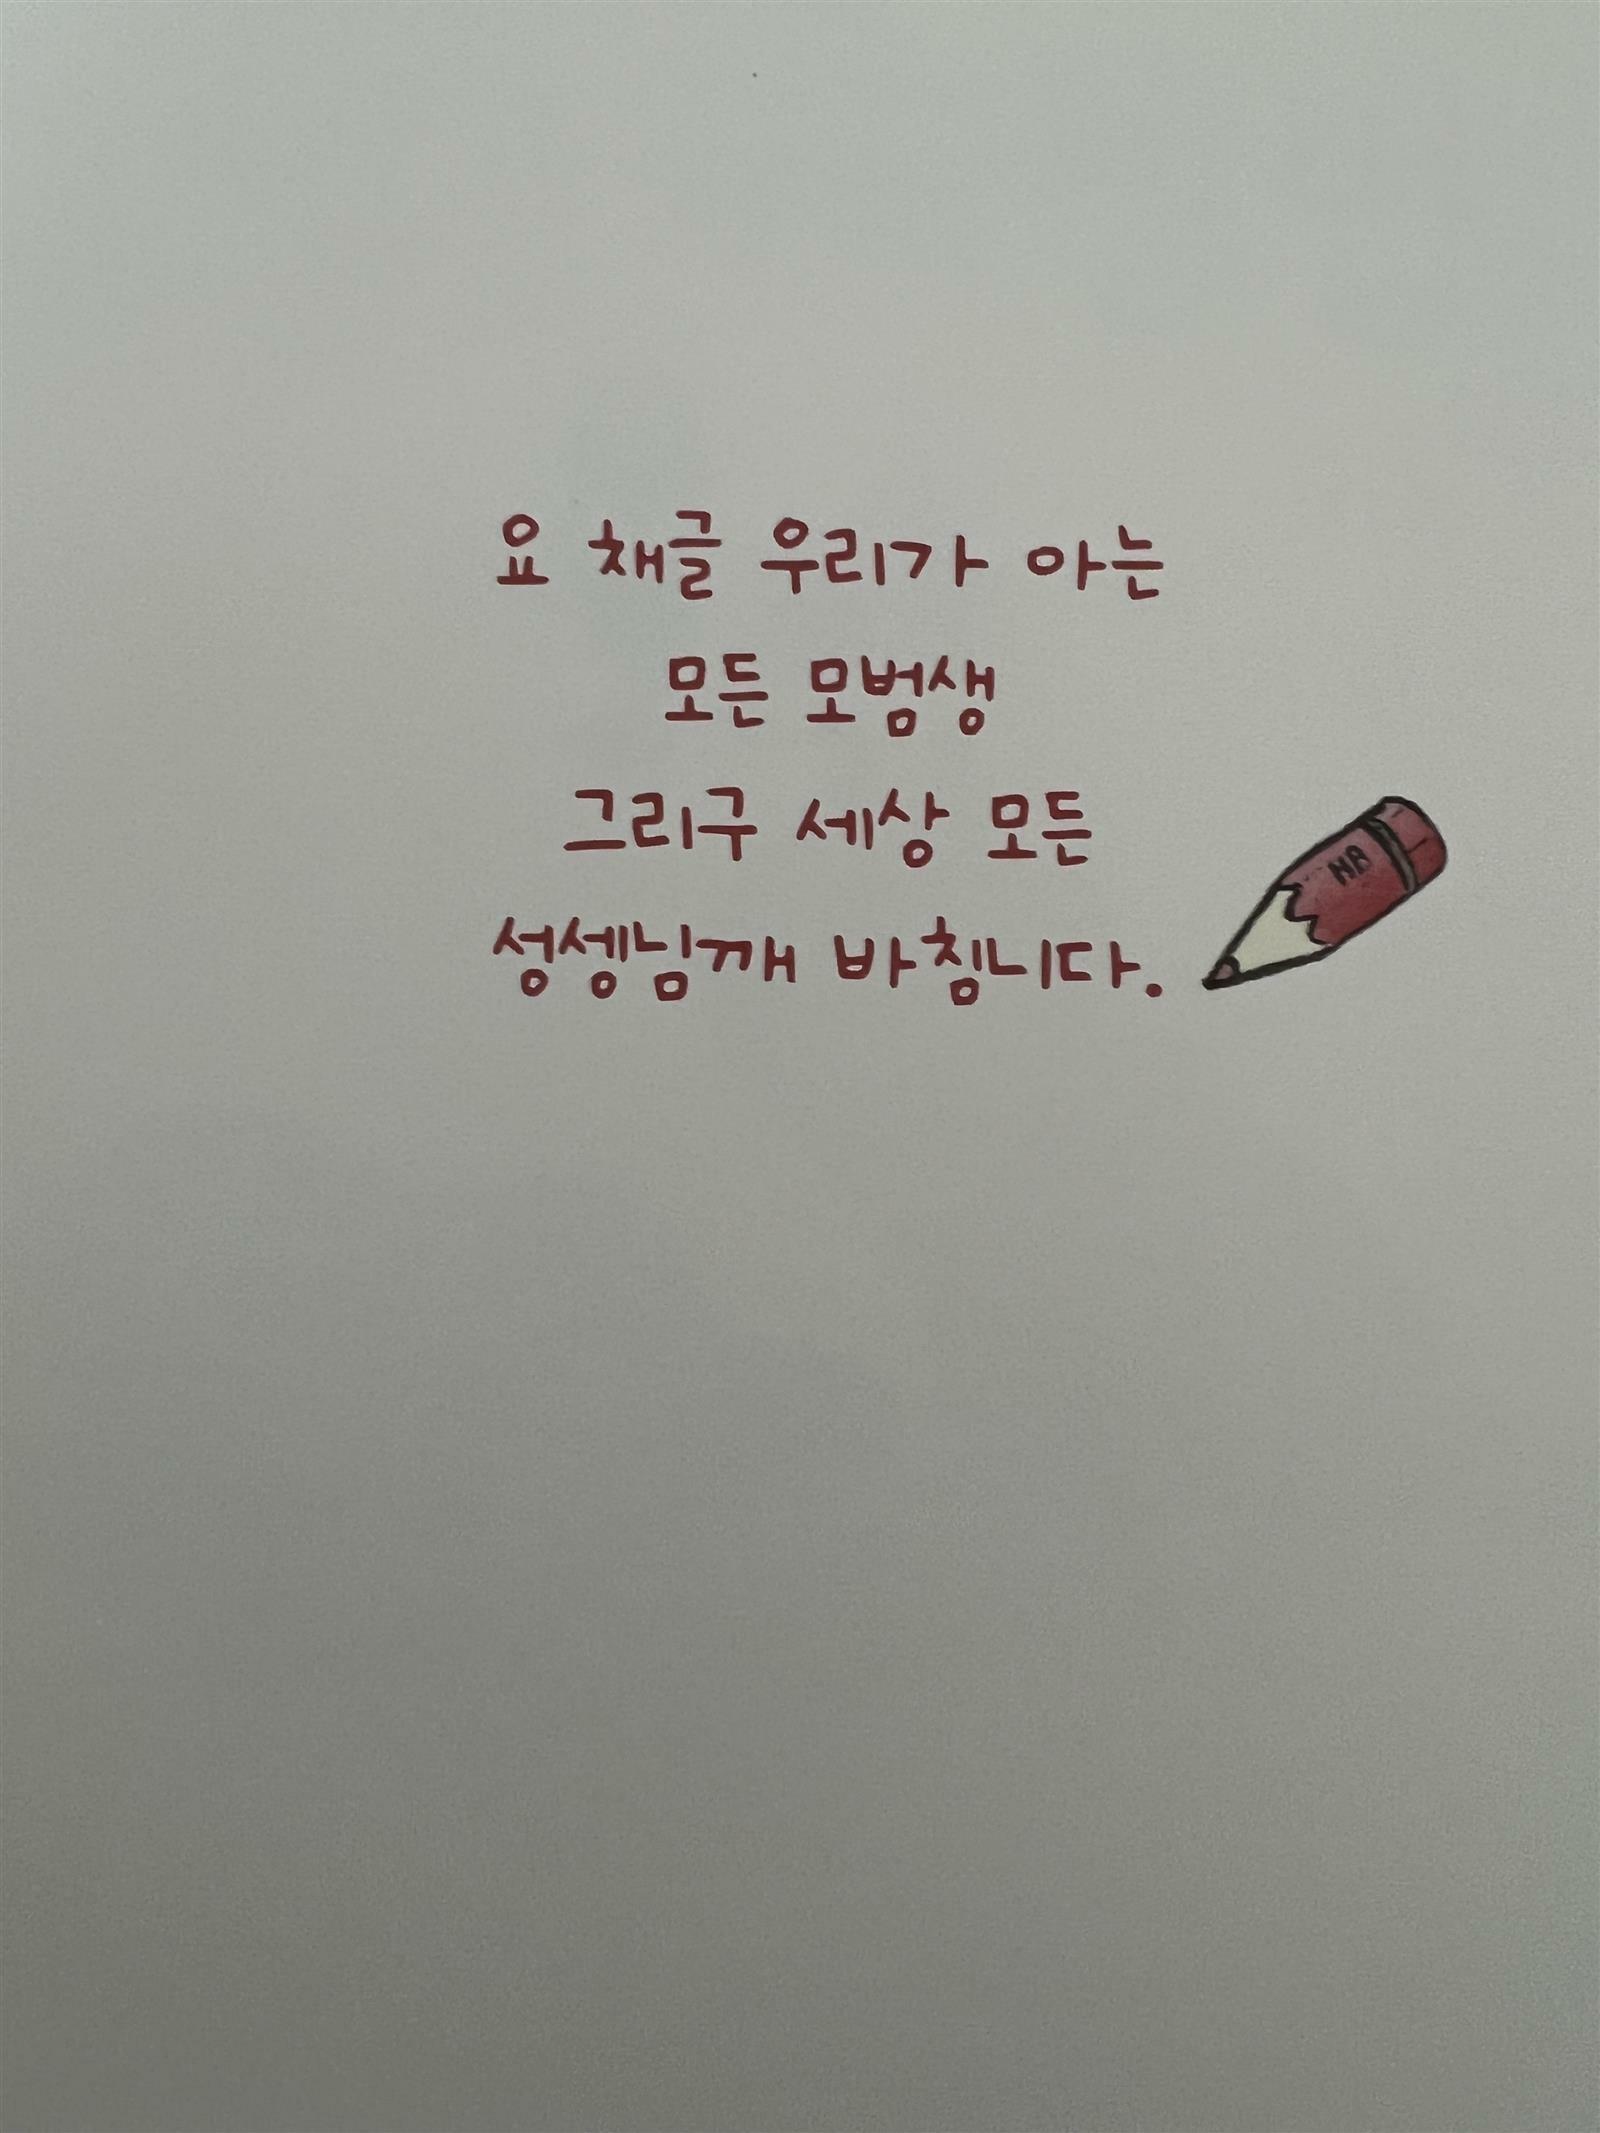 요 채글 우리가 아는
모든 모범생
그리구 세상 모든
성셍님깨 바침니다.
HB